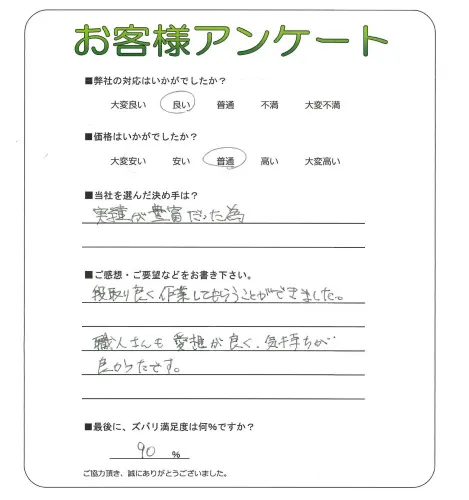 お客様アンケート
■弊社の対応はいかがでしたか？
大変良い 良い 普通 不満 大変不満
■価格はいかがでしたか？
大変安い 安い 普通 高い 大変高い
■当社を選んだ決め手は？
実績が豊富だった為
■ご感想・ご要望などをお書き下さい。
段取り良く作業してもらうことができました。
職人さんも愛想が良く、気持ちが
良かったです。
■最後に、ズバリ満足度は何%ですか？
90 %
ご協力頂き、誠にありがとうございました。